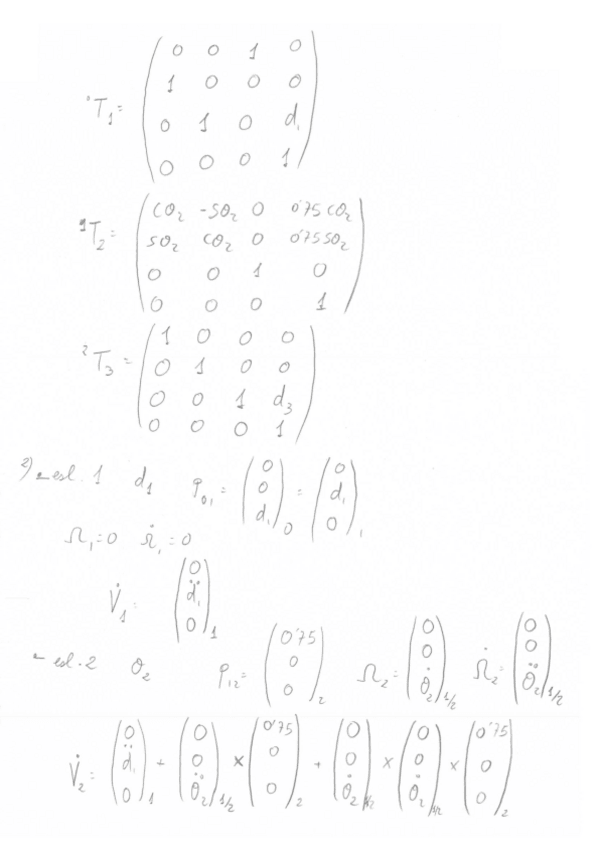 ⁰T₁= ( 0 0 1 0
1 0 0 0
0 1 0 d₁
0 0 0 1 )
¹T₂= ( Cθ₂ -Sθ₂ 0 0'75 Cθ₂
Sθ₂ Cθ₂ 0 0'75 Sθ₂
0 0 1 0
0 0 0 1 )
²T₃= ( 1 0 0 0
0 1 0 0
0 0 1 d₃
0 0 0 1 )
2) - esl. 1 d₁ P₀₁ = ( 0 0 d₁ )₀ = ( 0 d₁ 0 )₁
Ω₁=0 Ω̇₁=0
V̇₁= ( 0 d̈₁ 0 )₁
- esl. 2 θ₂ P₁₂= ( 0'75 0 0 )₂ Ω₂= ( 0 0 θ̇₂ )₁/₂ Ω̇₂= ( 0 0 θ̈₂ )₁/₂
V̇₂= ( 0 d̈₁ 0 )₁ + ( 0 0 θ̈₂ )₁/₂ × ( 0'75 0 0 )₂ + ( 0 0 θ̇₂ )₁/₂ × ( 0 0 θ̇₂ )₁/₂ × ( 0'75 0 0 )₂